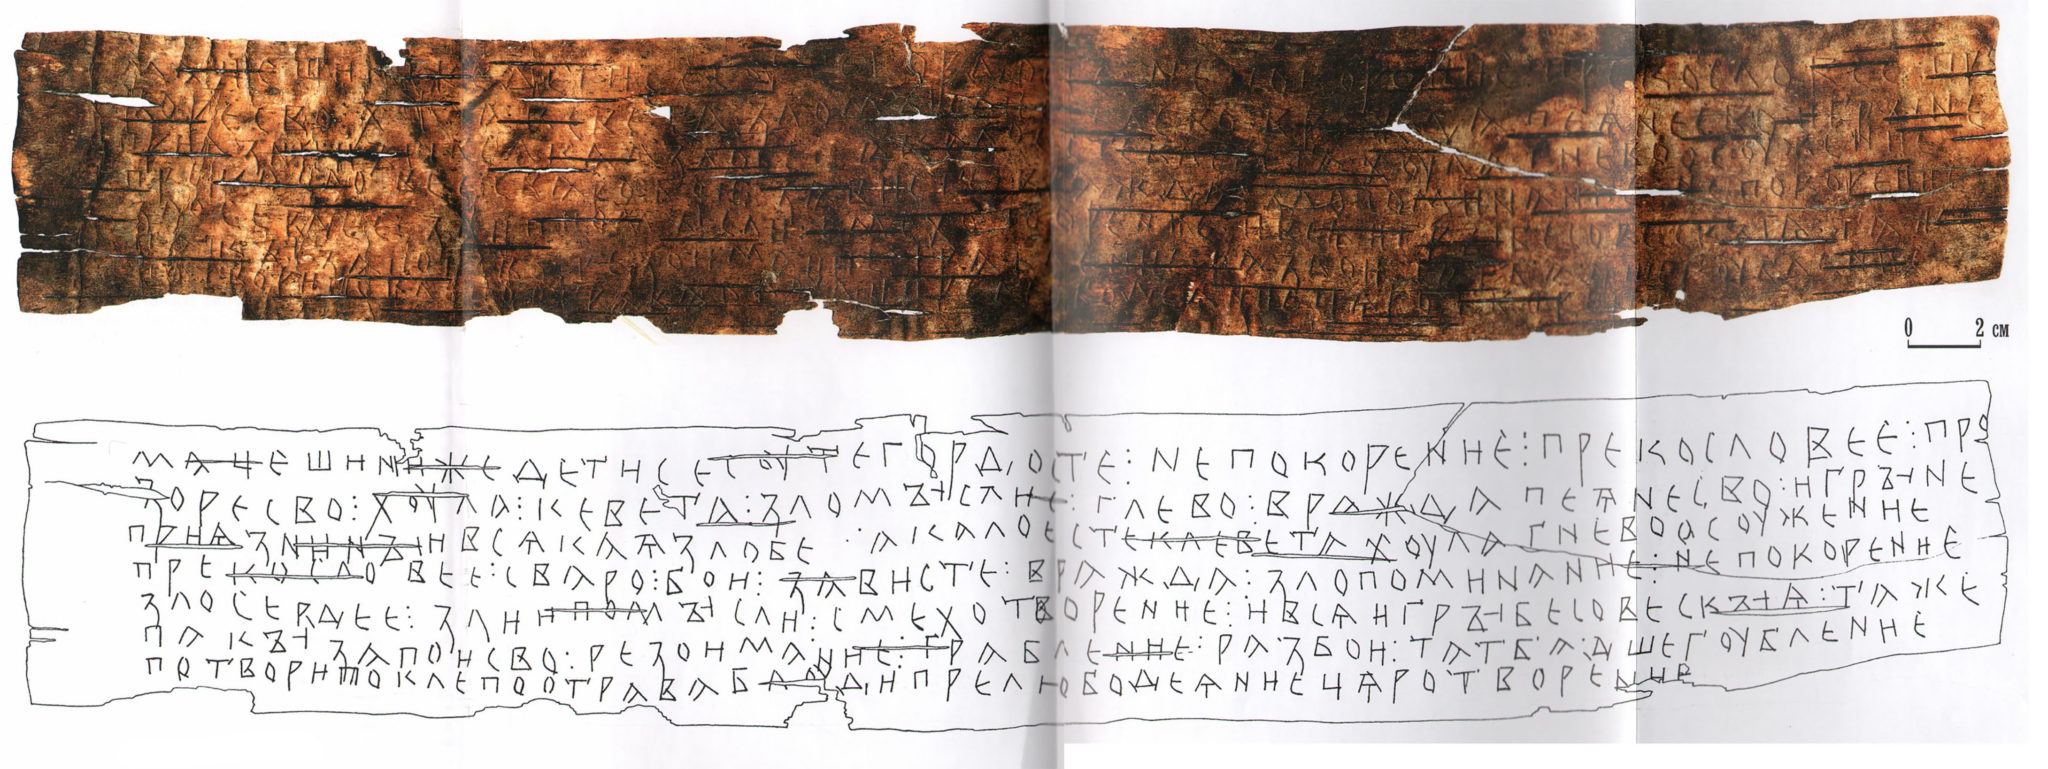 МАЧЕШИНЖЕДЕТИСЕСОУТЕГОРДОСТЕ⁝НЕПОКОРЕНИЕ⁝ПРЕКОСЛОВЕЕ⁝ПРО
ЗОРЕСВО⁝ХОУЛА⁝КЕВЕТА⁝ЗЛОМЪІСЛИЕ⁝ГЛЕВО⁝ВРАЖДАПЕѦНЕСВО⁝ИГРЪІНЕ
ПРИѦЗНИНЪІИВСѦКАѦЗЛОБЕ⁝АКАЛОЕСТЕКЛЕВЕТАХОУЛАГНЕВООСОУЖЕНИЕ
ПРЕКОСЛОВЕЕ⁝СВАРО⁝БОИ⁝ЗАВИСТЕ⁝ВРАЖДА⁝ЗЛОПОМИНАНИЕ⁝НЕПОКОРЕНИЕ
ЗЛОСЕРДЕЕ⁝ЗЛИИПОМЪІСЛИ⁝СМЕХОТВОРЕНИЕ⁝ИВСѦИГРЪІБЕСОВЕСКЪІѦ⁝ТАЖЕ
ПАКЪІЗАПОИСВО⁝РЕЗОИМАНИЕ⁝ГРАБЛЕНИЕ⁝РАЗБОИ⁝ТАТБА⁝ДШЕГОУБЛЕНИЕ
ПОТВОРИТОКЛЕПООТРАВАБЛОУДИПРЕЛЮБОДЕѦНИЕЧѦРОТВОРЕНИЕ
0 2 см